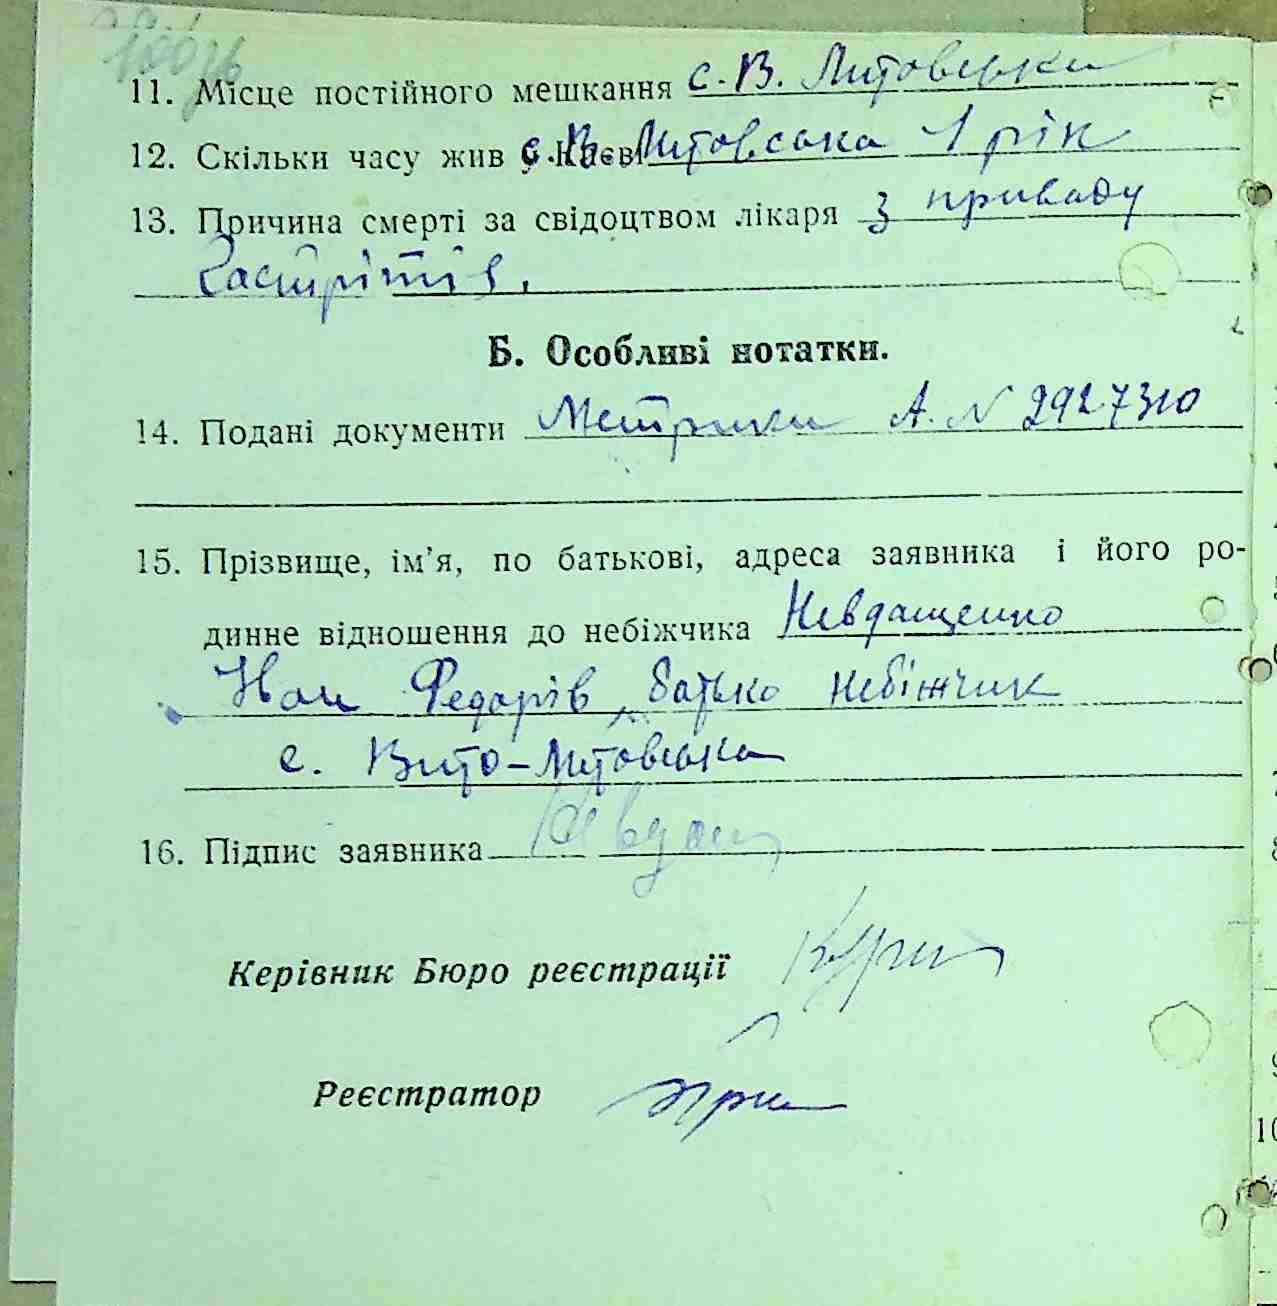 11. Місце постійного мешкання с. В. Литовська
12. Скільки часу жив у Києві с. В. Литовська 1 рік
13. Причина смерті за свідоцтвом лікаря з приваду
Гастрітів.
Б. Особливі нотатки.
14. Подані документи Метрики А. N 2927310
15. Прізвище, ім’я, по батькові, адреса заявника і його ро-
динне відношення до небіжчика Невдащенко
Федорів, батько небіжчик
с. Вито-Литовська
16. Підпис заявника
Керівник Бюро реєстрації
Реєстратор